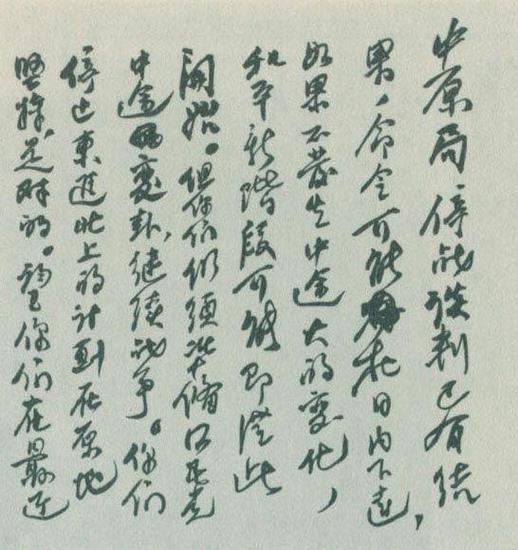 中原局停战谈判已有结
果,命令可能在日内下达,
如果不发生中途大的变化,
和平新階段可能即從此
開始。但你们仍须準備国民党
中途变卦,继续战争。你们
停止東进北上的计划在原地
坚持,是对的。望你们在最近